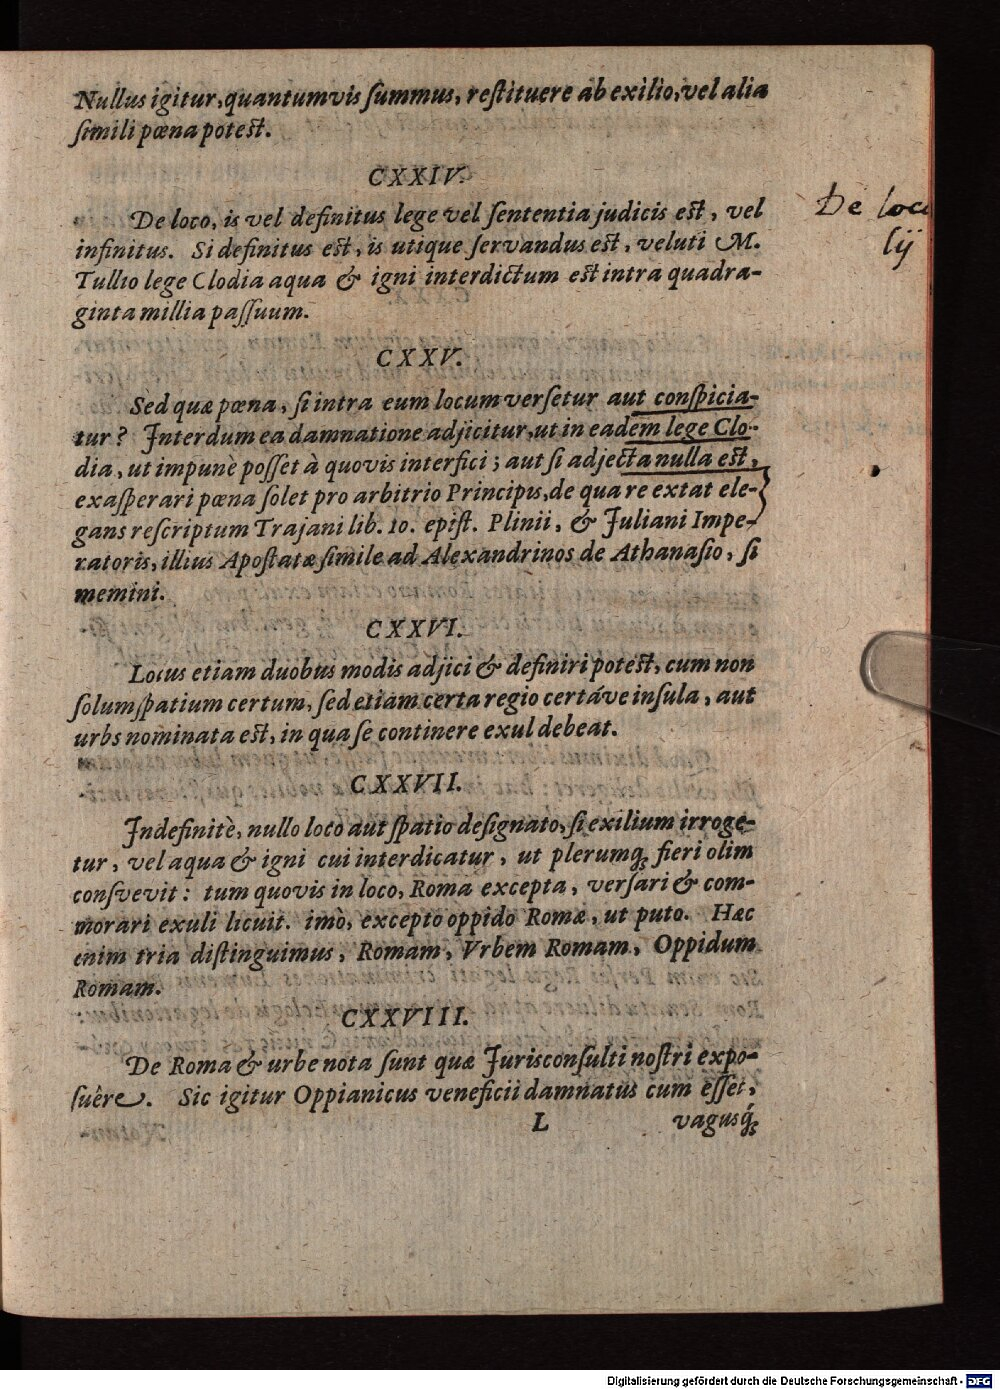 Nullus igitur, quantumvis ſummus, reſtituere ab exilio, vel alia
ſimili pœna poteſt.
CXXIV.
De loco, is vel definitus lege vel ſententia judicis eſt, vel
infinitus. Si definitus eſt, is utique ſervandus eſt, veluti M.
Tullio lege Clodia aqua & igni interdictum eſt intra quadra-
ginta millia paſſuum.
De loc
CXXV.
Sed quæ pœna, ſi intra eum locum verſetur aut conſpicia-
tur? Interdum ea damnatione adjicitur, ut in eadem lege Clo-
dia, ut impunè poſſet à quovis interfici; aut ſi adjecta nulla eſt,
exaſperari pœna ſolet pro arbitrio Principis, de qua re extat ele-
gans reſcriptum Trajani lib. 10. epiſt. Plinii, & Juliani Impe-
ratoris, illius Apoſtatæ ſimile ad Alexandrinos de Athanaſio, ſi
memini.
CXXVI.
Locus etiam duobus modis adjici & definiri poteſt, cum non
ſolum ſpatium certum, ſed etiam certa regio certáve inſula, aut
urbs nominata eſt, in qua ſe continere exul debeat.
CXXVII.
Indefinitè, nullo loco aut ſpatio deſignato, ſi exilium irroge-
tur, vel aqua & igni cui interdicatur, ut plerumq; fieri olim
conſvevit: tum quovis in loco, Roma excepta, verſari & com-
morari exuli licuit. imò, excepto oppido Romæ, ut puto. Hæc
enim tria diſtinguimus, Romam, Vrbem Romam, Oppidum
Romam.
CXXVIII.
De Roma & urbe nota ſunt quæ Jurisconſulti noſtri expo-
ſuêre. Sic igitur Oppianicus veneficii damnatus cum eſſet,
L vagusq́;
Digitalisierung gefördert durch die Deutsche Forschungsgemeinschaft - DFG